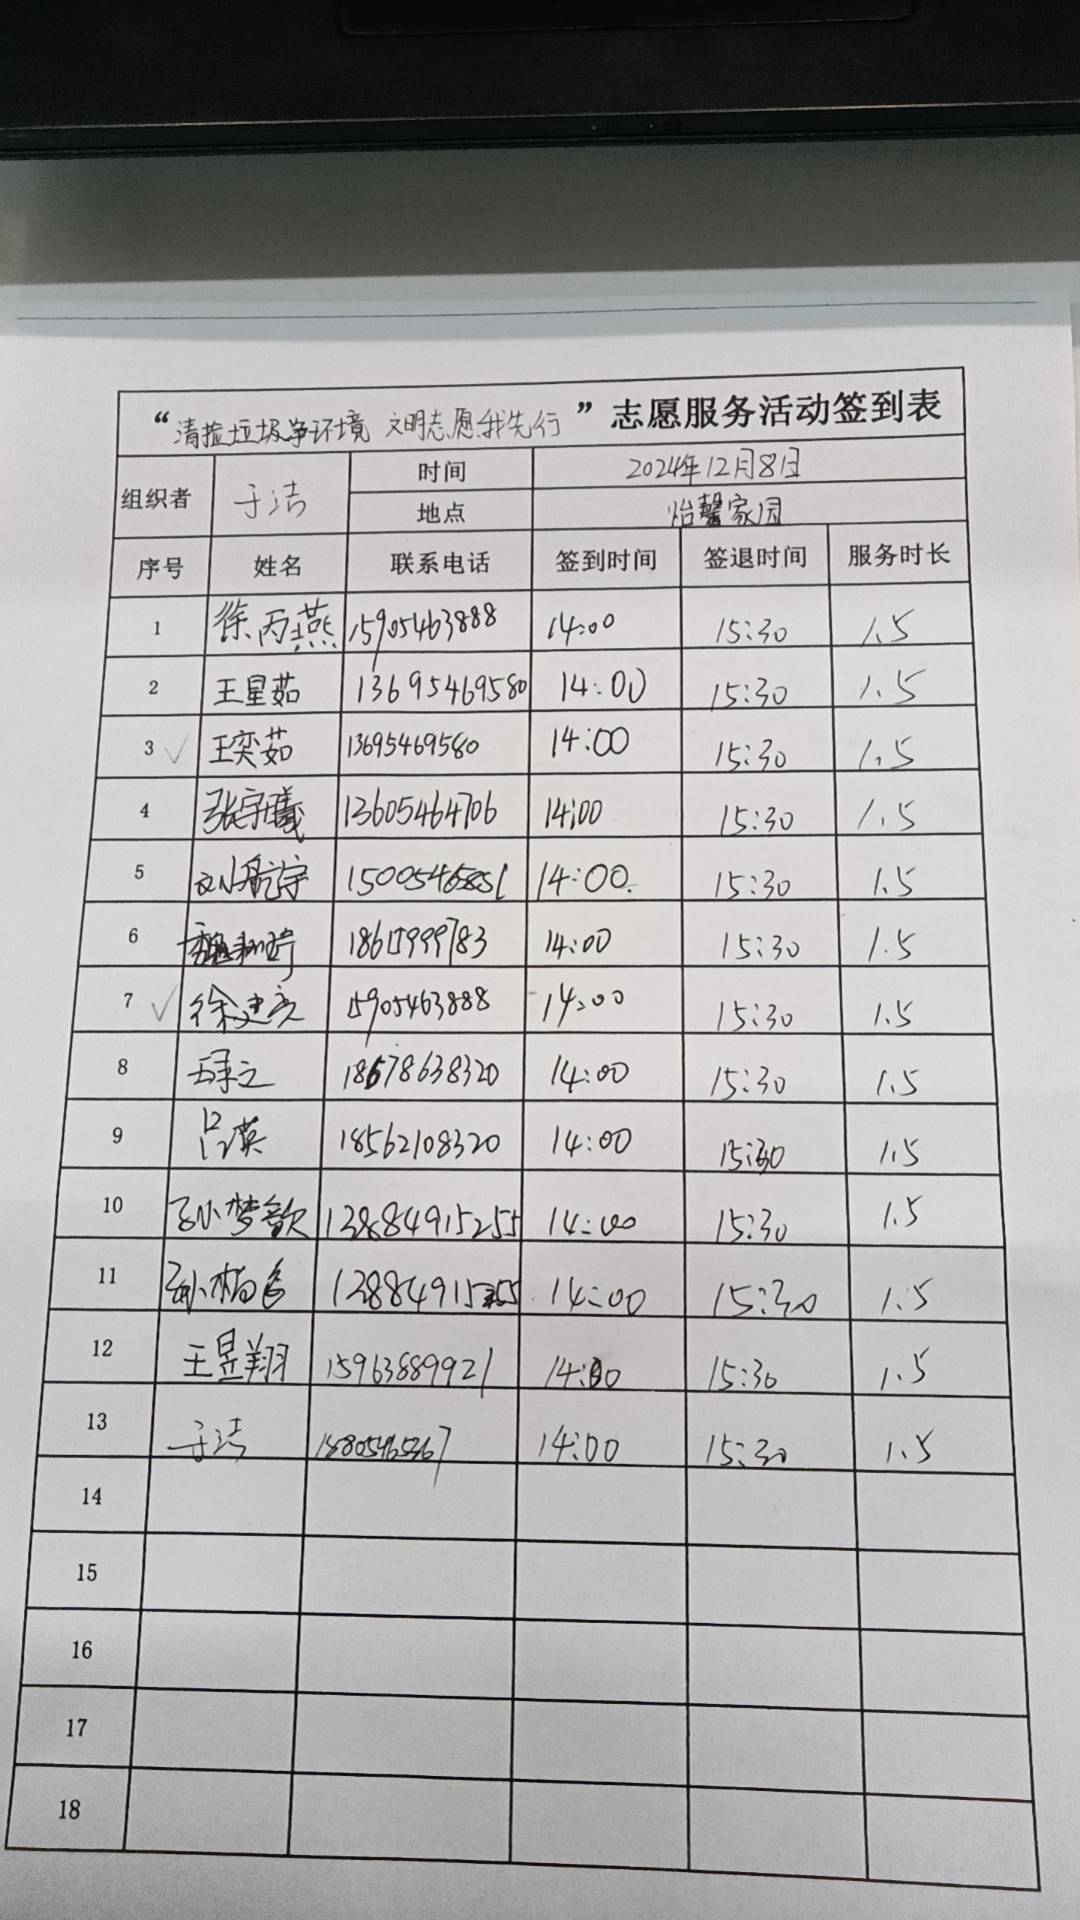 “清捡垃圾净环境 文明志愿我先行”志愿服务活动签到表
组织者 于洁 时间 2024年12月8日
地点 怡馨家园
序号 姓名 联系电话 签到时间 签退时间 服务时长
1 徐丙燕 15905463888 14:00 15:30 1.5
2 王星茹 13695469580 14:00 15:30 1.5
3 王奕茹 13695469580 14:00 15:30 1.5
4 张宇曦 13605464706 14:00 15:30 1.5
5 刘航宇 15005465851 14:00 15:30 1.5
6 14:00 15:30 1.5
7 徐建亮 15905463888 14:00 15:30 1.5
8 18678638320 14:00 15:30 1.5
9 吕英 18562108320 14:00 15:30 1.5
10 孙梦歆 13884915255 14:00 15:30 1.5
11 14:00 15:30 1.5
12 王昱翔 15963889921 14:00 15:30 1.5
13 于洁 14:00 15:30 1.5
14
15
16
17
18